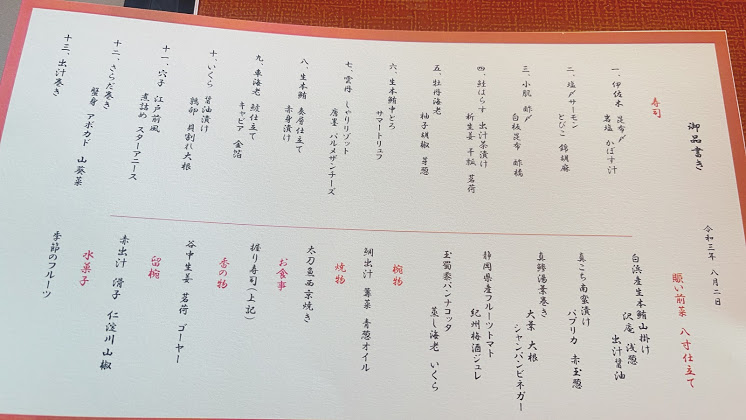 御品書き
令和三年 八月二日
寿司
一、伊佐木 昆布〆
岩塩 かぼす汁
二、塩〆サーモン
とびこ 錦胡麻
三、小肌 酢〆
白板昆布 酢橘
四、鮭はらす 出汁茶漬け
新生姜 干瓢 茗荷
五、牡丹海老
柚子胡椒 芽葱
六、生本鮪中とろ
サマートリュフ
七、雲丹 しゃりリゾット
唐墨 パルメザンチーズ
八、生本鮪 奏居仕立て
赤身漬け
九、車海老 紋仕立て
キャビア 金箔
十、いくら 醤油漬け
鶉卵 貝割れ大根
十一、穴子 江戸前風
煮詰め スターアニース
十二、さらだ巻き
蟹身 アボカド 山葵菜
十三、出汁巻き
賑い前菜 八寸仕立て
白浜産生本鮪山掛け
沢庵 浅葱
出汁醤油
真こち南蛮漬け
パプリカ 赤玉葱
真鯵湯葉巻き
大葉 大根
シャンパンビネガー
静岡県産フルーツトマト
紀州梅酒ジュレ
玉蜀黍パンナコッタ
蒸し海老 いくら
椀物
鯛出汁 蓴菜 青葱オイル
焼物
太刀魚西京焼き
お食事
握り寿司(上記)
香の物
谷中生姜 茗荷 ゴーヤー
留椀
赤出汁 滑子 仁淀川山椒
水菓子
季節のフルーツ